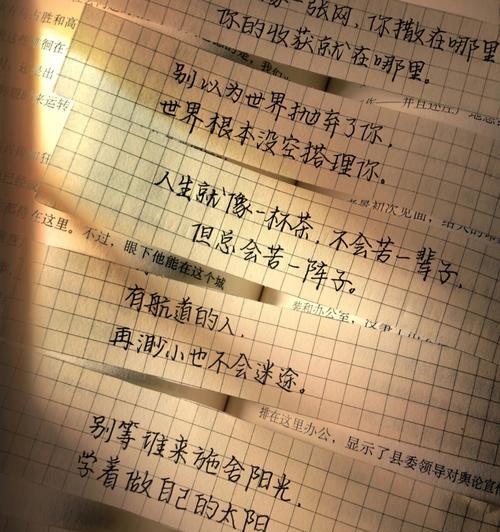 一张网，你撒在哪里
你的收获就在哪里。
别以为世界抛弃了你，
世界根本没空搭理你。
初次见面，
人生就像一杯茶，不会苦一辈子，
但总会苦一阵子。
在这里。不过，眼下他能在这个城
有航道的人，
和办公室，
再渺小也不会迷途。
排在这里办公，显示了县委领导对舆论宣传
别等谁来施舍阳光，
学着做自己的太阳